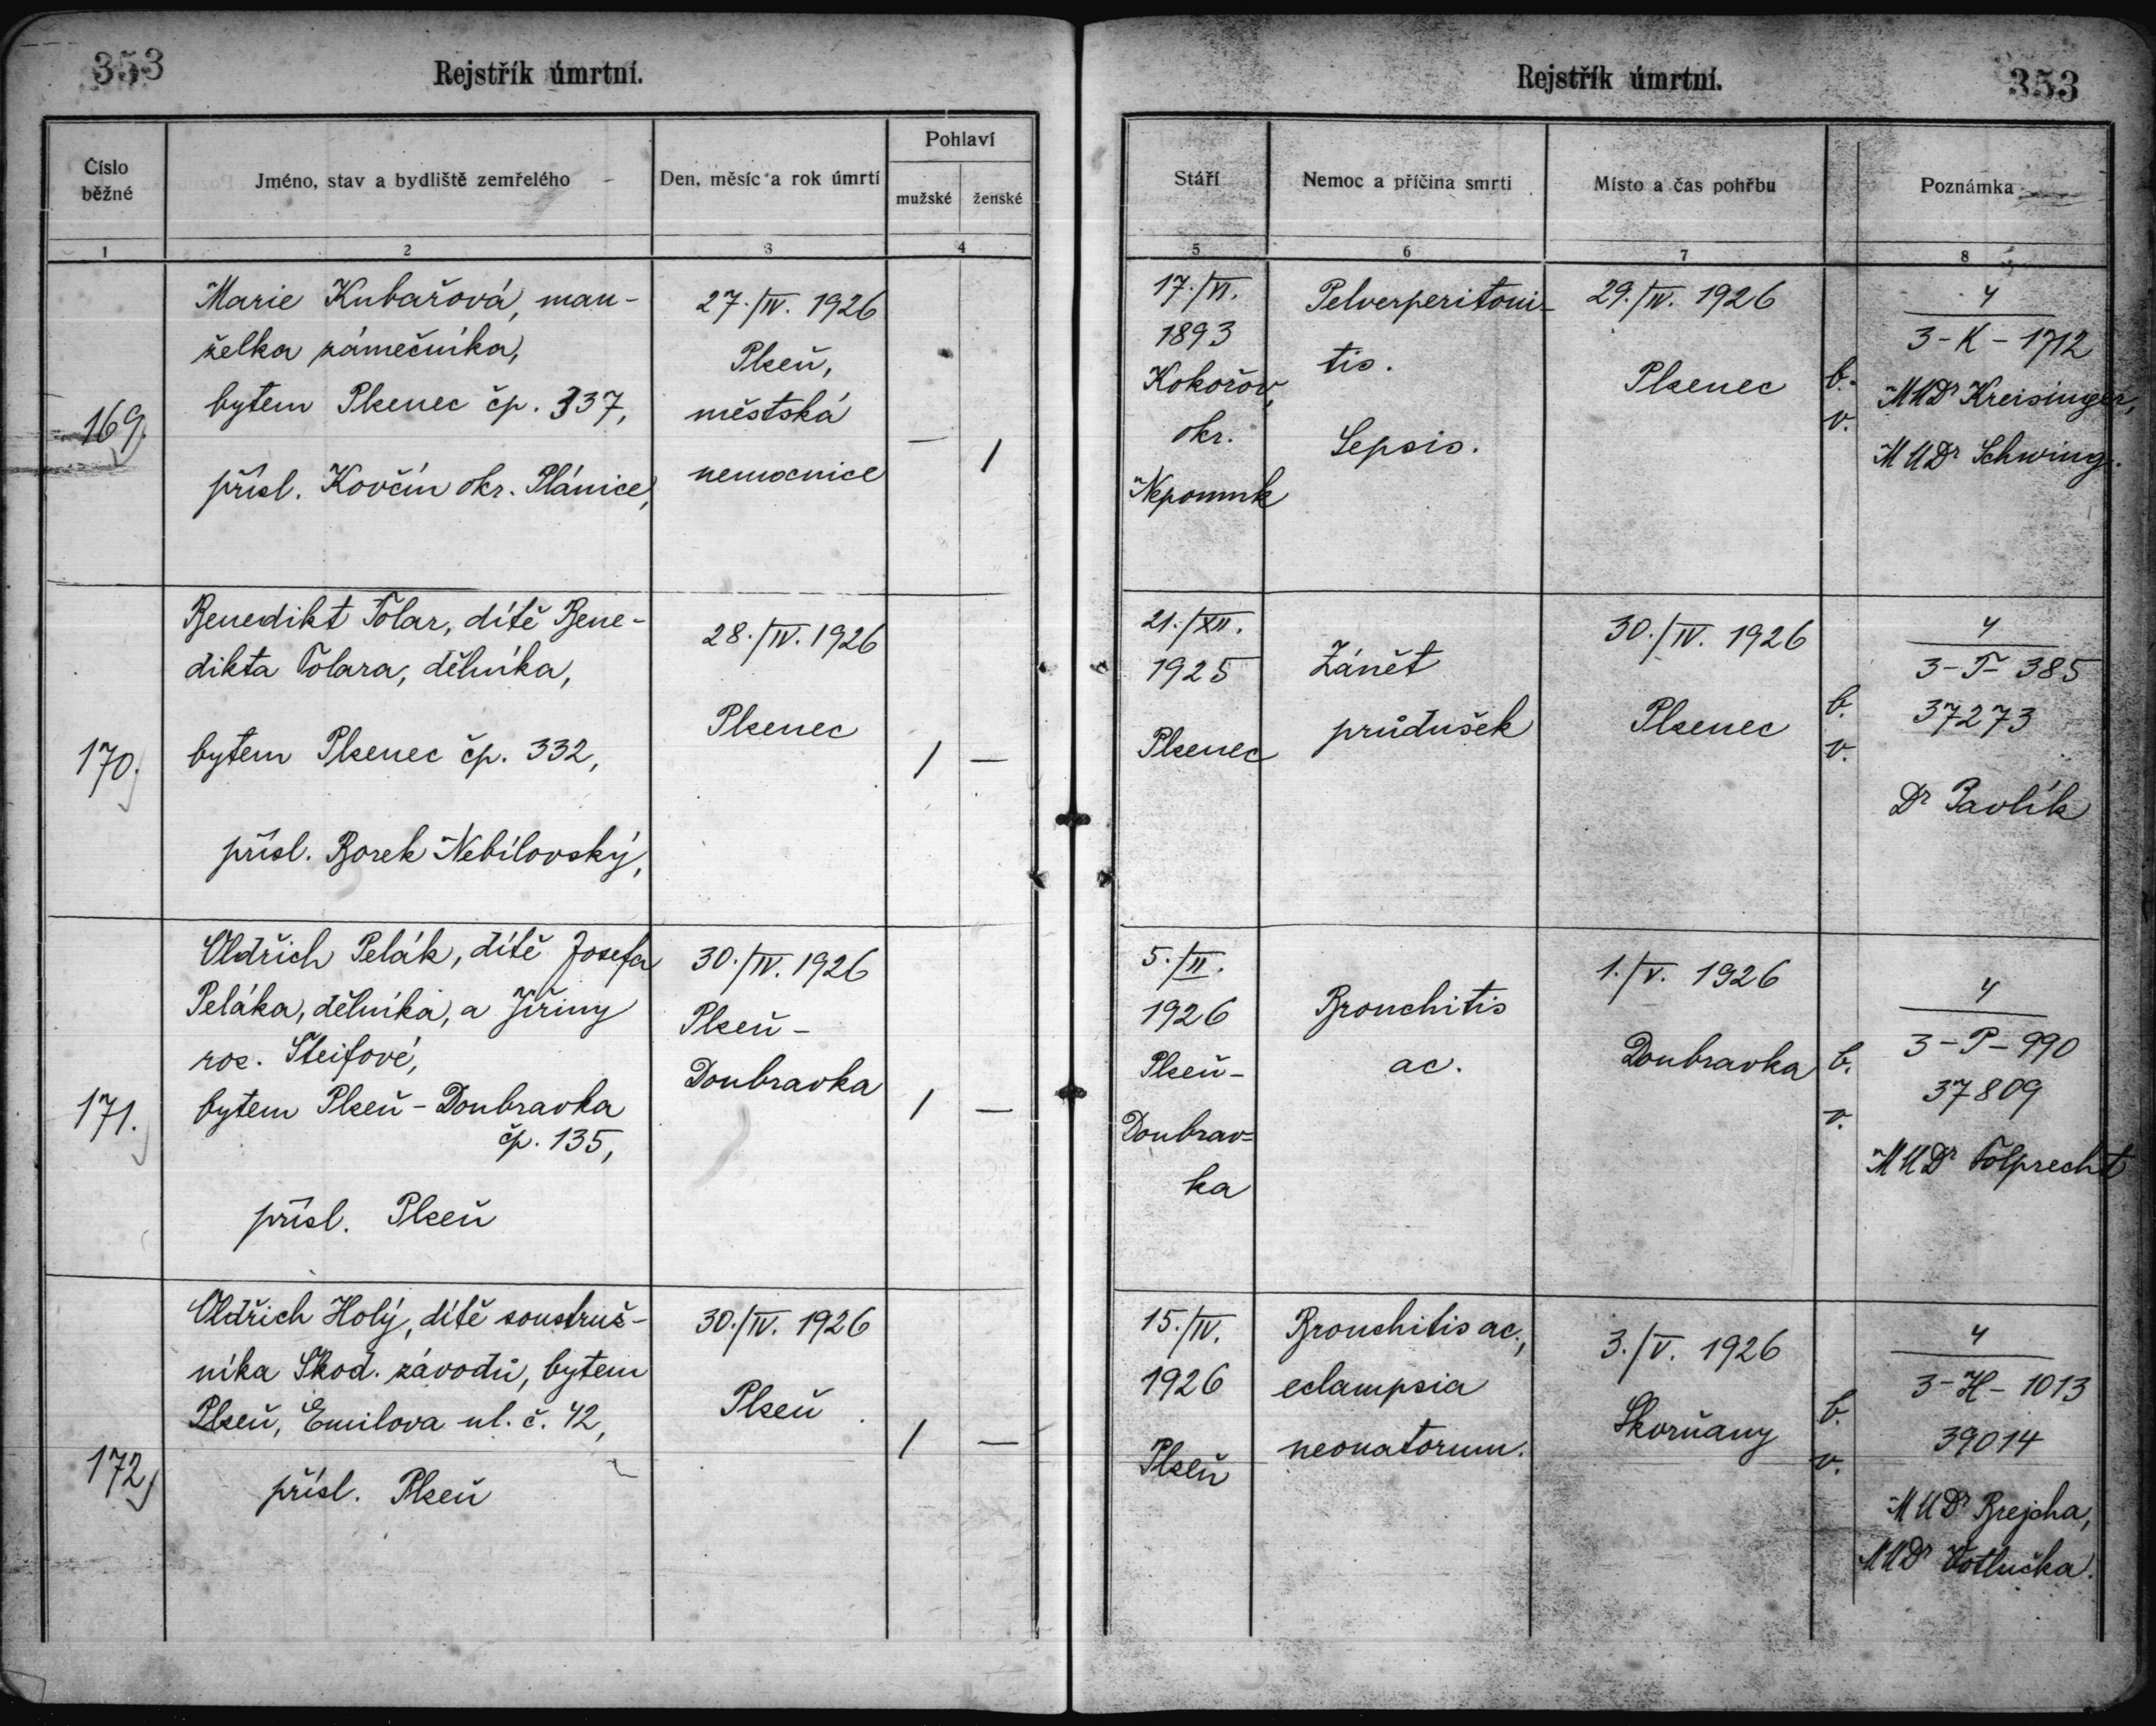 353
Rejstřík úmrtní.
Číslo
běžné
Jméno, stav a bydliště zemřelého
Den, měsíc a rok úmrtí
Pohlaví
mužské
ženské
1
2
3
4
169.
Marie Kubařová, man-
želka zámečníka,
bytem Plzenec čp. 337,
přísl. Kovčín okr. Plánice,
27./IV. 1926
Plzeň,
městská
nemocnice
—
1
170.
Benedikt Tolar, dítě Bene-
dikta Tolara, dělníka,
bytem Plzenec čp. 332,
přísl. Borek Nebílovský,
28./IV. 1926
Plzenec
1
—
171.
Oldřich Pelák, dítě Josefa
Peláka, dělníka, a Jiřiny
roz. Šteifové,
bytem Plzeň - Doubravka
čp. 135,
přísl. Plzeň
30./IV. 1926
Plzeň -
Doubravka
1
—
172.
Oldřich Holý, dítě soustruž-
níka Škod. závodů, bytem
Plzeň, Emilova ul. č. 42,
přísl. Plzeň
30./IV. 1926
Plzeň
1
—
Rejstřík úmrtní.
353
Stáří
Nemoc a příčina smrti
Místo a čas pohřbu
Poznámka
5
6
7
8
17./VI.
1893
Kokořov,
okr.
Nepomuk
Pelveoperitoni-
tis.
Sepsis.
29./IV. 1926
Plzenec
b.
v.
4
3-K-1712
MUDr Kreisinger,
MUDr Schwing.
21./XII.
1925
Plzenec
Zánět
průdušek
30./IV. 1926
Plzenec
b.
v.
4
3-T-385
37273
Dr Pavlík
5./II.
1926
Plzeň-
Doubrav-
ka
Bronchitis
ac.
1./V. 1926
Doubravka
b.
v.
4
3-P-990
37809
MUDr Tolprecht
15./IV.
1926
Plzeň
Bronchitis ac.,
eclampsia
neonatorum.
3./V. 1926
Skorňany
b.
v.
4
3-H-1013
39014
MUDr Brejcha,
MUDr Votlučka.